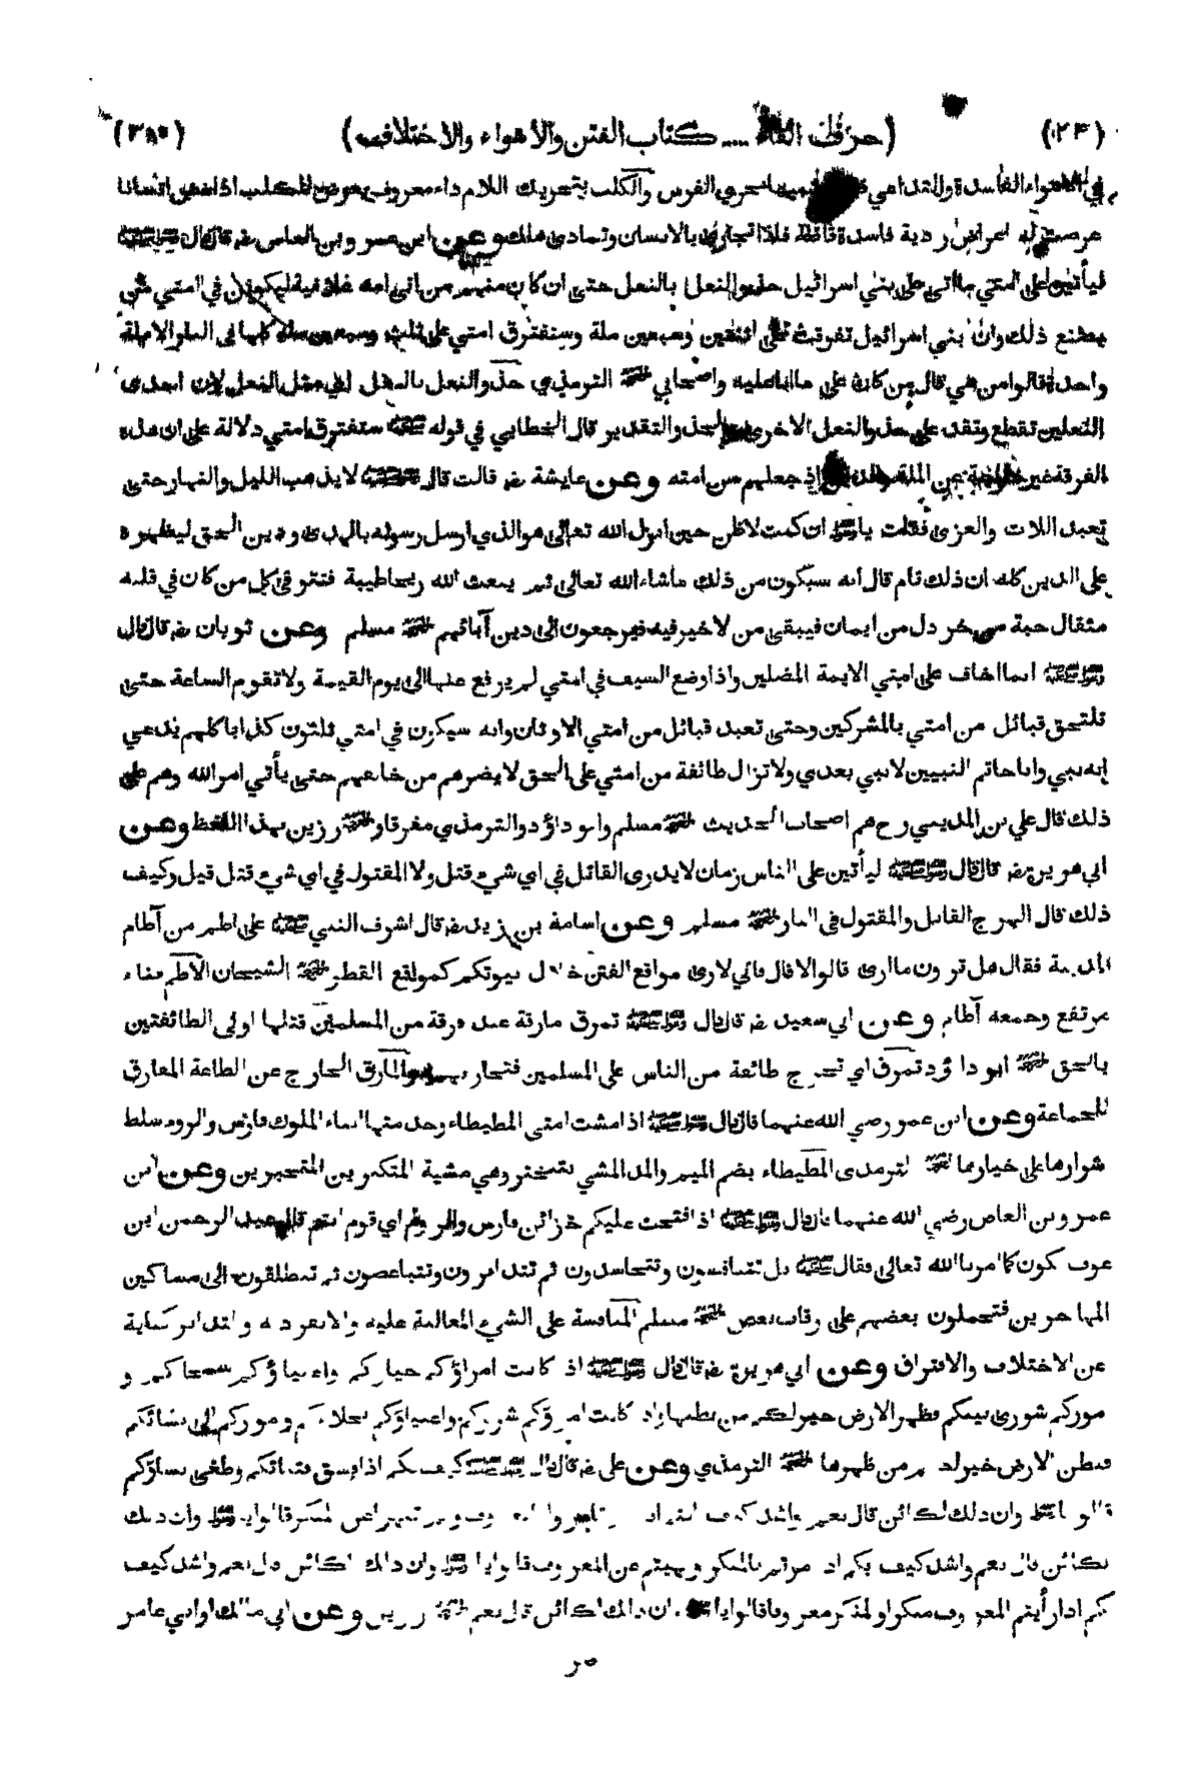 (٠٢۴) (حرف الفاء .... كتاب الفتن والأهواء والاختلاف) (٣٨٠)
في الأهواء الفاسدة والتداعي تجري الفرس والكلب بتحريك اللام داء معروف يعرض للكلب اذا عض انسانا
عرضت له اعراض ردية فاسدة قاتلة فاذا تجارى بالانسان وتمادى هلك وعن ابن عمرو بن العاص رضـ قال قال رسول الله صلى الله عليه وسلم
ليأتين على امتي ما اتى على بني اسرائيل حذو النعل بالنعل حتى ان كان منهم من اتى امه علانية ليكونن في امتي من
يصنع ذلك وان بني اسرائيل تفرقت على اثنتين وسبعين ملة وستفترق امتي على ثلث وسبعين ملة كلها في النار الا ملة
واحدة قالوا من هي قال من كان على ما انا عليه واصحابي اخرجه الترمذي حذو النعل بالنعل اي مثل النعل لان احدى
النعلين تقطع وتقد على حذو النعل الاخرى والحذو التقدير قال الخطابي في قوله صلى الله عليه وسلم ستفترق امتي دلالة على ان هذه
الفرقة غير خارجة من الملة والدين اذ جعلهم من امته وعن عايشة رضـ قالت قال رسول الله صلى الله عليه وسلم لا يذهب الليل والنهار حتى
تعبد اللات والعزى فقلت يا رسول الله ان كنت لاظن حين انزل الله تعالى هو الذي ارسل رسوله بالهدى ودين الحق ليظهره
على الدين كله ان ذلك تام قال انه سيكون من ذلك ما شاء الله تعالى ثم يبعث الله ريحا طيبة فتتوفى كل من كان في قلبه
مثقال حبة من خردل من ايمان فيبقى من لا خير فيه فيرجعون الى دين آبائهم اخرجه مسلم وعن ثوبان رضـ قال قال
رسول الله صلى الله عليه وسلم انما اخاف على امتي الايمة المضلين واذا وضع السيف في امتي لم يرفع عنها الى يوم القيمة ولا تقوم الساعة حتى
تلتحق قبائل من امتي بالمشركين وحتى تعبد قبائل من امتي الاوثان وانه سيكون في امتي ثلثون كذابا كلهم يدعي
انه نبي وانا خاتم النبيين لا نبي بعدي ولا تزال طائفة من امتي على الحق لا يضرهم من خالفهم حتى يأتي امر الله وهم على
ذلك قال علي بن المديني رح هم اصحاب الحديث اخرجه مسلم وابو داؤد والترمذي مفرقا واخرجه رزين بهذا اللفظ وعن
ابي هريرة رضـ قال قال رسول الله صلى الله عليه وسلم ليأتين على الناس زمان لا يدرى القاتل في اي شيء قتل ولا المقتول في اي شيء قتل قيل وكيف
ذلك قال الهرج القاتل والمقتول في النار اخرجه مسلم وعن اسامة بن زيد رضـ قال اشرف النبي صلى الله عليه وسلم على اطم من آطام
المدينة فقال هل ترون ما ارى قالوا لا قال فاني لارى مواقع الفتن خلال بيوتكم كمواقع القطر اخرجه الشيخان الاطم بناء
مرتفع وجمعه آطام وعن ابي سعيد رضـ قال قال رسول الله صلى الله عليه وسلم تمرق مارقة عند فرقة من المسلمين قتلها اولى الطائفتين
بالحق اخرجه ابو داؤد تمرق اي تخرج طائفة من الناس على المسلمين فتحاربهم والمارق الخارج عن الطاعة المفارق
للجماعة وعن ابن عمر رضي الله عنهما قال قال رسول الله صلى الله عليه وسلم اذا مشت امتي المطيطاء وخدمتها ابناء الملوك فارس والروم سلط
شرارها على خيارها اخرجه الترمذى المطيطاء بضم الميم والمد المشي بتبختر وهي مشية المتكبرين المتجبرين وعن ابن
عمرو بن العاص رضي الله عنهما قال قال رسول الله صلى الله عليه وسلم اذا فتحت عليكم خزائن فارس والروم اي قوم انتم قال عبد الرحمن ابن
عوف نكون كما امرنا الله تعالى فقال صلى الله عليه وسلم بل تتنافسون وتتحاسدون ثم تتدابرون وتتباغضون ثم تنطلقون الى مساكين
المهاجرين فتحملون بعضهم على رقاب بعض اخرجه مسلم المنافسة على الشيء المغالبة عليه والانفراد به والتدابر كناية
عن الاختلاف والافتراق وعن ابي هريرة رضـ قال قال رسول الله صلى الله عليه وسلم اذا كانت امراؤكم خياركم واغنياؤكم سمحاكم و
اموركم شورى بينكم فظهر الارض خير لكم من بطنها واذا كانت امراؤكم شراركم واغنياؤكم بخلاءكم واموركم الى نسائكم
فبطن الارض خير لكم من ظهرها اخرجه الترمذي وعن علي رضـ قال قال رسول الله صلى الله عليه وسلم كيف بكم اذا فسق فتيانكم وطغى نساؤكم
قالوا يا رسول الله وان ذلك لكائن قال نعم واشد كيف انتم اذا لم تأمروا بالمعروف ولم تنهوا عن المنكر قالوا يا رسول الله وان ذلك
لكائن قال نعم واشد كيف بكم اذا امرتم بالمنكر ونهيتم عن المعروف قالوا يا رسول الله وان ذلك لكائن قال نعم واشد كيف
بكم اذا رأيتم المعروف منكرا والمنكر معروفا قالوا يا رسول الله وان ذلك لكائن قال نعم اخرجه رزين وعن ابي مالك او ابي عامر